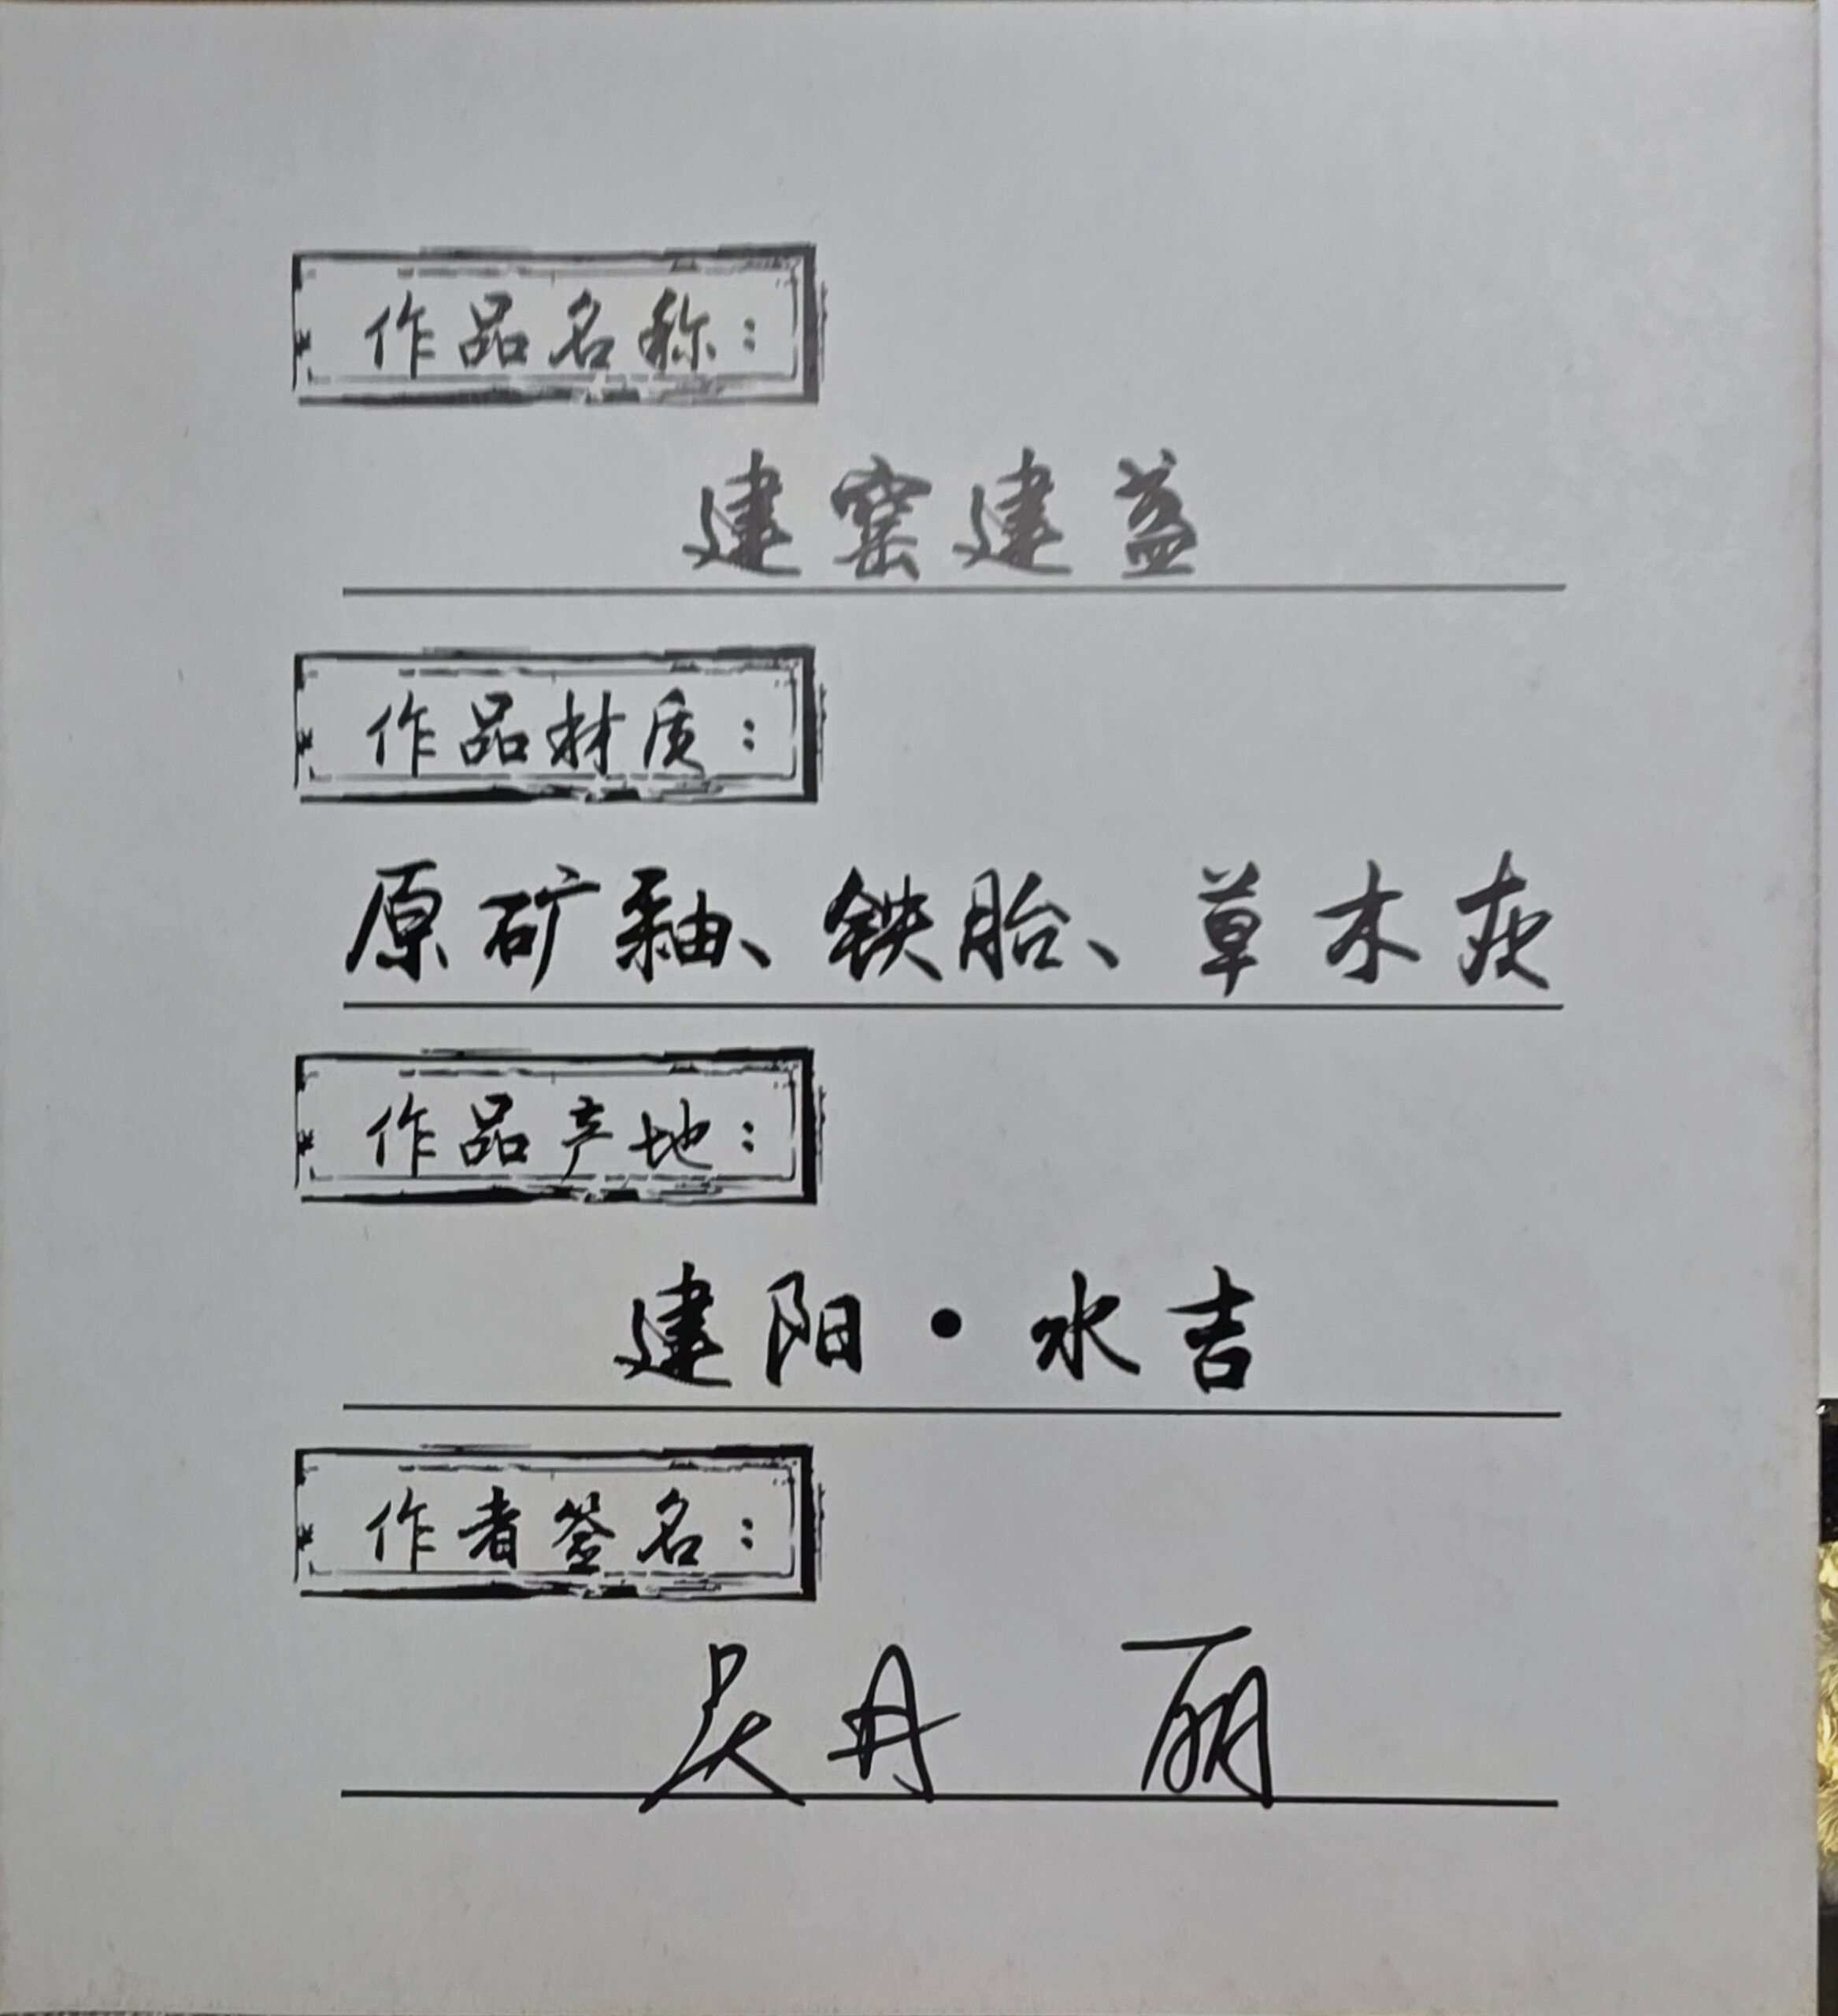 作品名称：
建窑建盏
作品材质：
原矿釉、铁胎、草木灰
作品产地：
建阳·水吉
作者签名：
吴丹丽